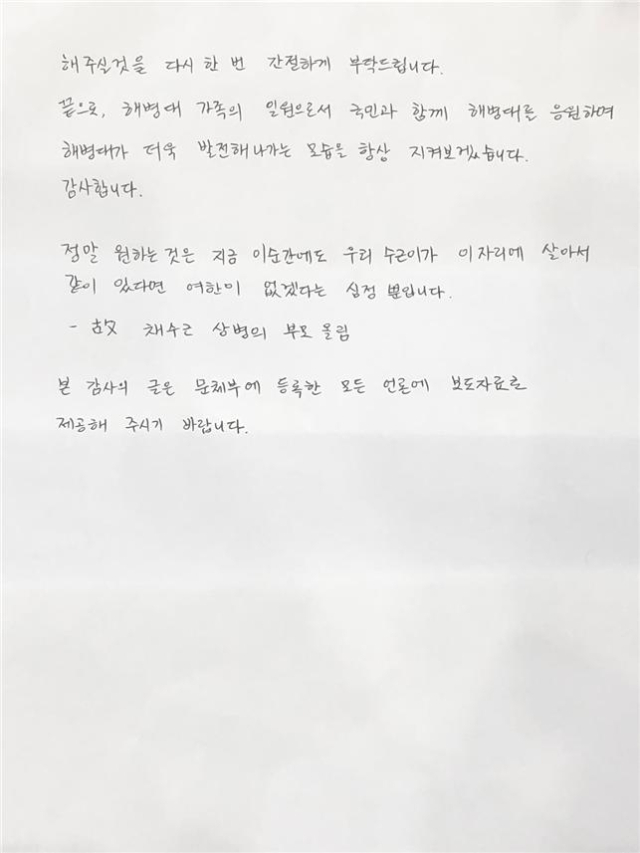 해주실것을 다시 한 번 간절하게 부탁드립니다.
끝으로, 해병대 가족의 일원으로서 국민과 함께 해병대를 응원하며
해병대가 더욱 발전해나가는 모습을 항상 지켜보겠습니다.
감사합니다.
정말 원하는것은 지금 이순간에도 우리 수근이가 이자리에 살아서
같이 있다면 여한이 없겠다는 심정 뿐입니다.
- 故 채수근 상병의 부모 올림
본 감사의 글은 문체부에 등록한 모든 언론에 보도자료로
제공해 주시기 바랍니다.